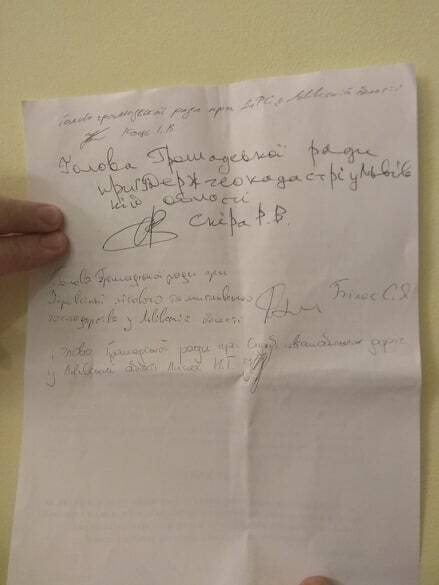 Голова громадської ради при ДРС у Львівській області
Коць І.В
Голова Громадської ради
при ГУДержгеокадастрі у Львів
кій області
Скіра Р.В.
Голова Громадської ради при
лісового та мисливського
господарства у Львівській області Білос С.Я
Голова Громадської ради при Службі автомобільних доріг
у Львівській області М.Г